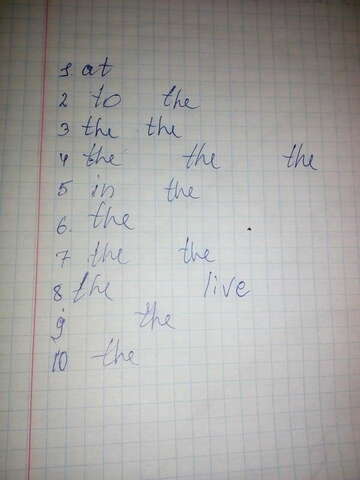 1. at
2 to the
3 the the
4 the the the
5 in the
6. the
7 the the
8 the live
9 the
10 the